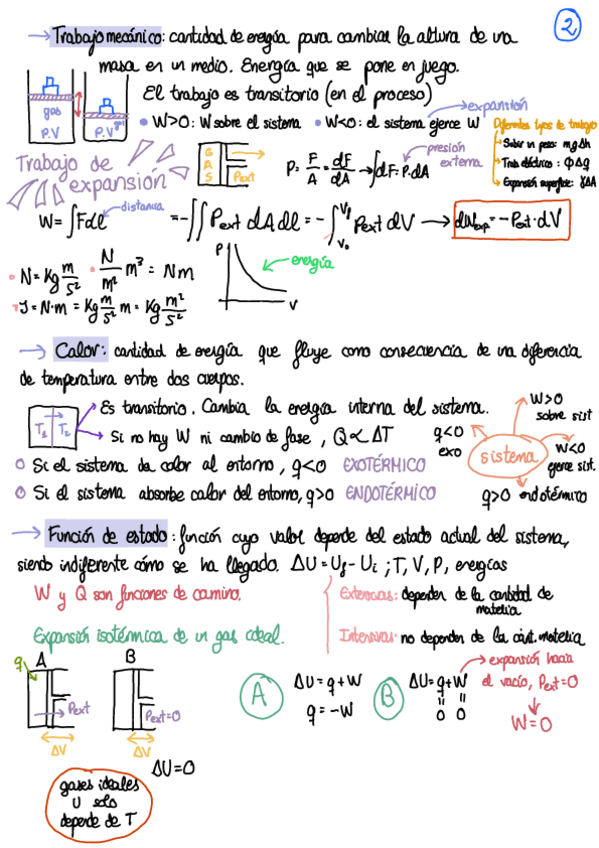 2
→ Trabajo mecánico: cantidad de energía para cambiar la altura de una
masa en un medio. Energía que se pone en juego.
El trabajo es transitorio (en el proceso)
gas
P.V
P.V' gas
• W>0: W sobre el sistema • W<0: el sistema ejerce W
expansión
Diferentes tipos de trabajo
→ Subir un peso: mgΔh
→ Trab. eléctrico: ΦΔq
→ Expansión superficie: γΔA
Trabajo de
expansión
GAS
Pext
P = F/A = dF/dA → ∫dF = P·dA
presión
externa
W = ∫Fdl
distancia
= -∫∫ Pext dA dl = -∫_{V₀}^{Vf} Pext dV → dWexp = -Pext·dV
• N = Kg m/s² • N/m² m³ = Nm
J = N·m = Kg m/s² m = Kg m²/s²
P
V
energía
→ Calor: cantidad de energía que fluye como consecuencia de una diferencia
de temperatura entre dos cuerpos.
T₁ T₂
Es transitorio. Cambia la energía interna del sistema.
Si no hay W ni cambio de fase, Q ∝ ΔT
○ Si el sistema da calor al entorno, q<0 EXOTÉRMICO
○ Si el sistema absorbe calor del entorno, q>0 ENDOTÉRMICO
sistema
W>0
sobre sist
q<0
exo
W<0
ejerce sist.
q>0 endotérmico
→ Función de estado: función cuyo valor depende del estado actual del sistema,
siendo indiferente cómo se ha llegado. ΔU = Uf - Ui ; T, V, P, energías
W y Q son funciones de camino.
Extensivas: dependen de la cantidad de
materia
Intensivas: no dependen de la cant. materia
Expansión isotérmica de un gas ideal.
q
A
Pext
ΔV
B
Pext=0
ΔV
ΔU=0
A
ΔU = q+W
q = -W
B
ΔU = q+W
0 0
expansión hacia
el vacío, Pext=0
W=0
gases ideales
U solo
depende de T